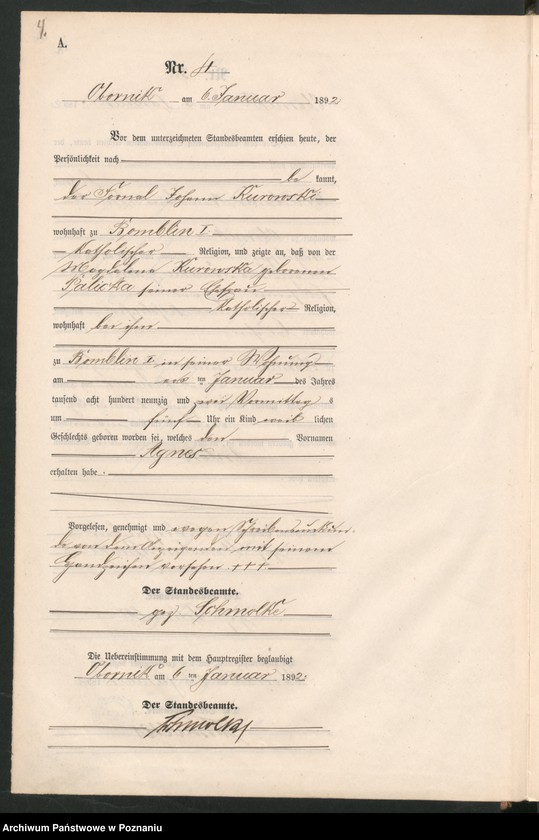 4.
A.
Nr. 4
Obornik am 6. Januar 1892
Vor dem unterzeichneten Standesbeamten erschien heute, der
Persönlichkeit nach
be kannt,
der Fornal Johann Kurowski
wohnhaft zu Bomblin I
katholischer Religion, und zeigte an, daß von der
Magdalena Kurowska geborenen
Palicka seiner Ehefrau
katholischer Religion,
wohnhaft bei ihm
zu Bomblin I in seiner Wohnung
am ten Januar des Jahres
tausend acht hundert neunzig und zwei Vormittag s
um fünf Uhr ein Kind weib lichen
Geschlechts geboren worden sei, welches den Vornamen
Agnes
erhalten habe.
Vorgelesen, genehmigt und wegen Schreibensunkun-
de von dem Anzeigenden mit seinem
Handzeichen versehen +++
Der Standesbeamte.
gez Schmolke
Die Uebereinstimmung mit dem Hauptregister beglaubigt
Obornik am 6 ten Januar 1892
Der Standesbeamte.
Schmolke
Archiwum Państwowe w Poznaniu